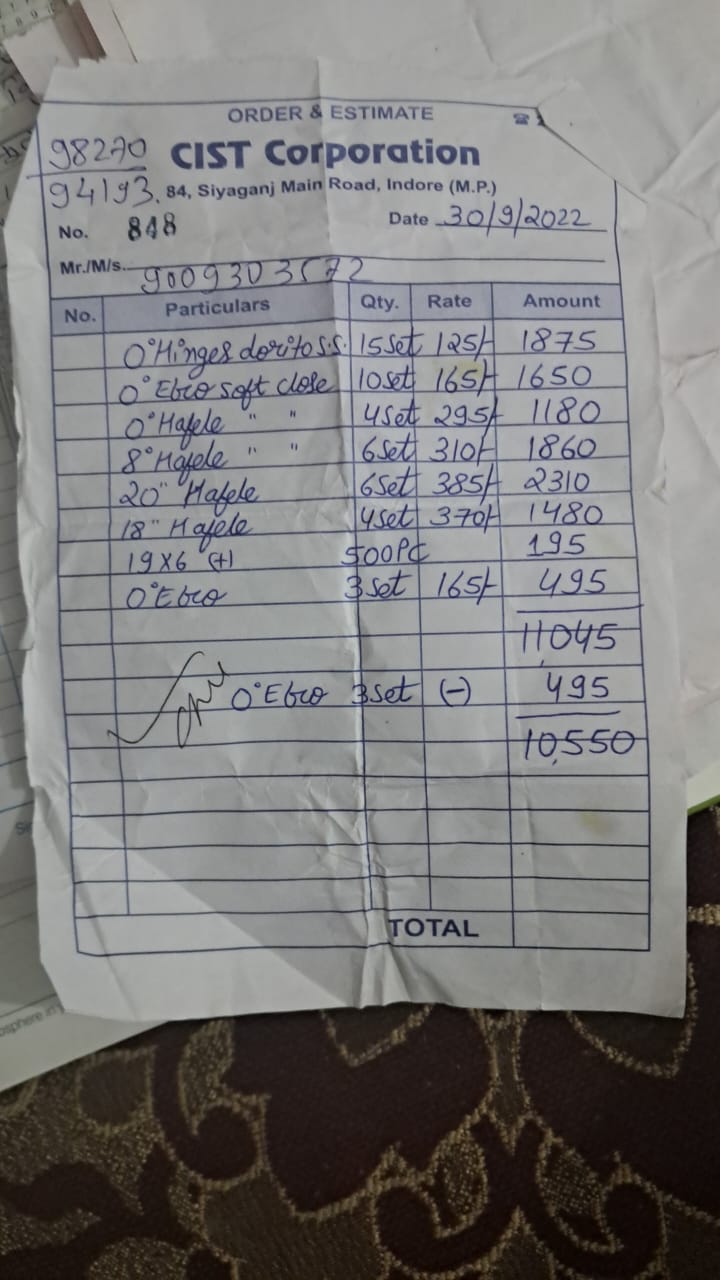 ORDER & ESTIMATE
98270
CIST Corporation
94193.
84, Siyaganj Main Road, Indore (M.P.)
No. 848
Date 30/9/2022
Mr./M/s. 9009303572
No. Particulars Qty. Rate Amount
0° Hinges dorito s.s. 15 set 125/- 1875
0° Ebco soft close 10 set 165/- 1650
0° Hafele " " 4 set 295/- 1180
8° Hafele " " 6 set 310/- 1860
20" Hafele 6 set 385/- 2310
18" Hafele 4 set 370/- 1480
19x6 (+) 500 PC 195
0° Ebco 3 set 165/- 495
11045
0° Ebco 3 set (-) 495
10,550
TOTAL